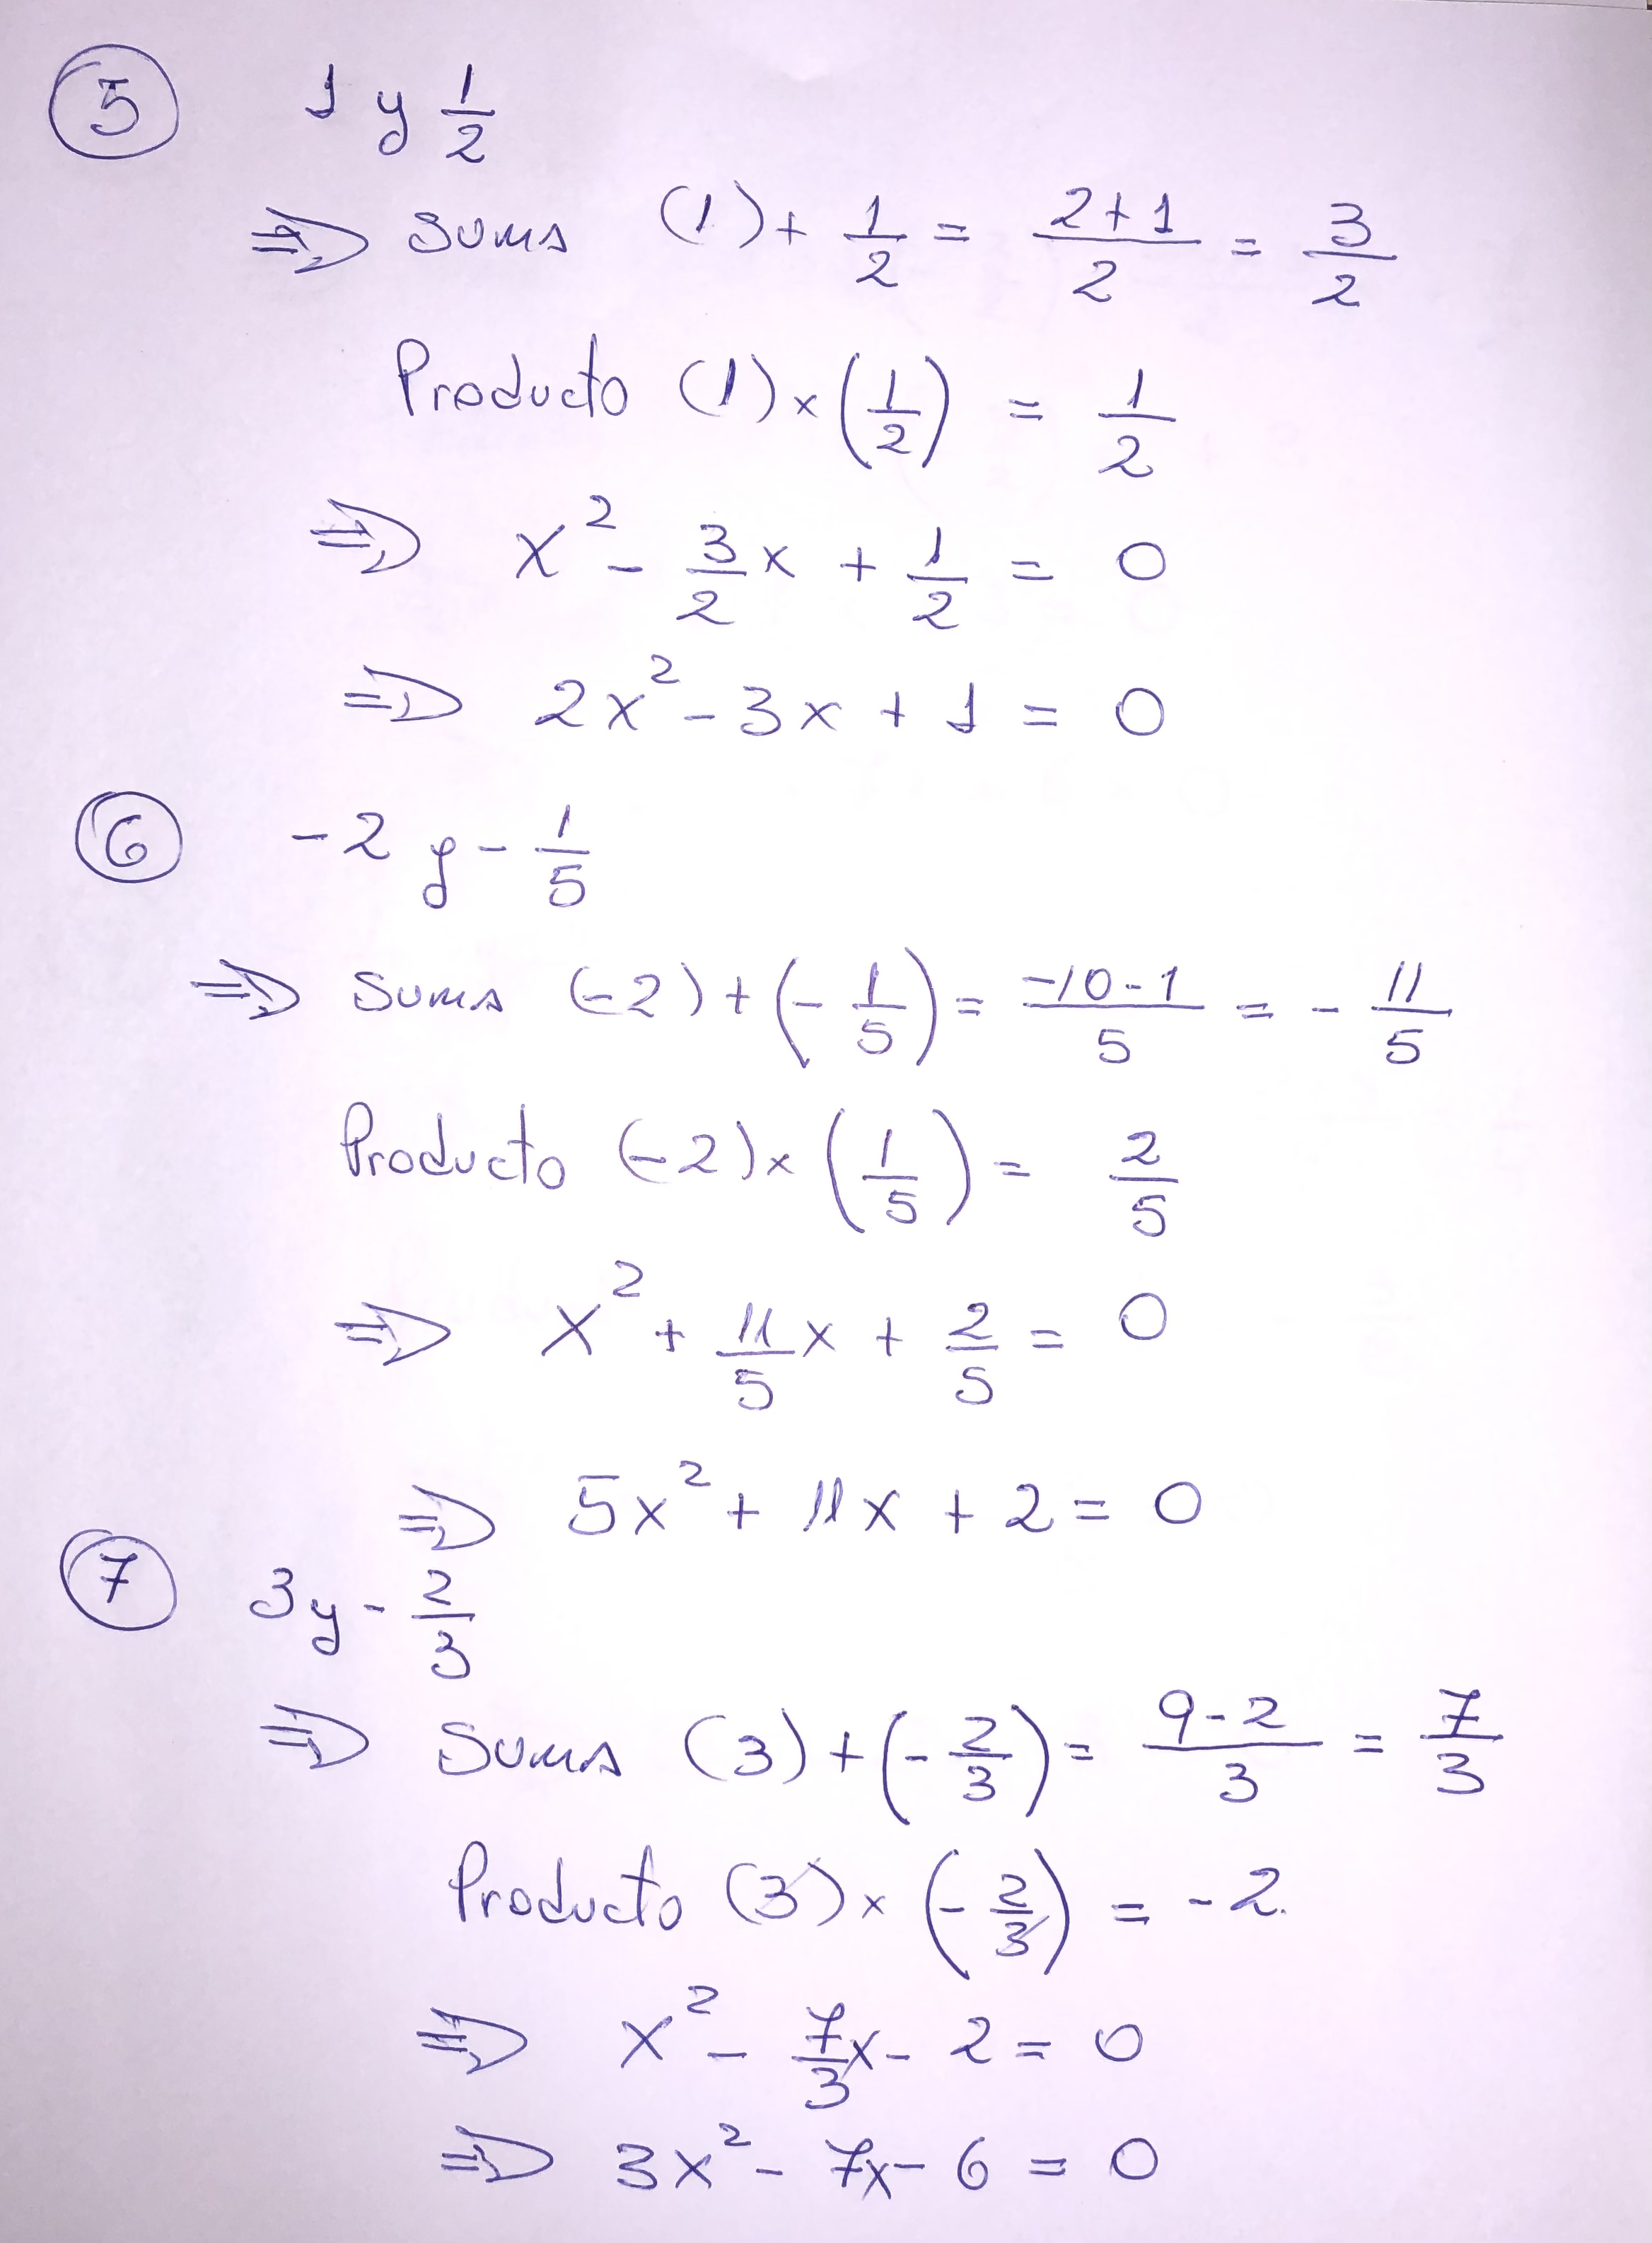 5 1 y 1/2
⇒ Suma (1) + 1/2 = (2+1)/2 = 3/2
Producto (1) × (1/2) = 1/2
⇒ x² - 3/2 x + 1/2 = 0
⇒ 2x² - 3x + 1 = 0
6 -2 y - 1/5
⇒ Suma (-2) + (- 1/5) = (-10-1)/5 = - 11/5
Producto (-2) × (1/5) = 2/5
⇒ x² + 11/5 x + 2/5 = 0
⇒ 5x² + 11x + 2 = 0
7 3 y - 2/3
⇒ Suma (3) + (- 2/3) = (9-2)/3 = 7/3
Producto (3) × (- 2/3) = -2.
⇒ x² - 7/3 x - 2 = 0
⇒ 3x² - 7x - 6 = 0